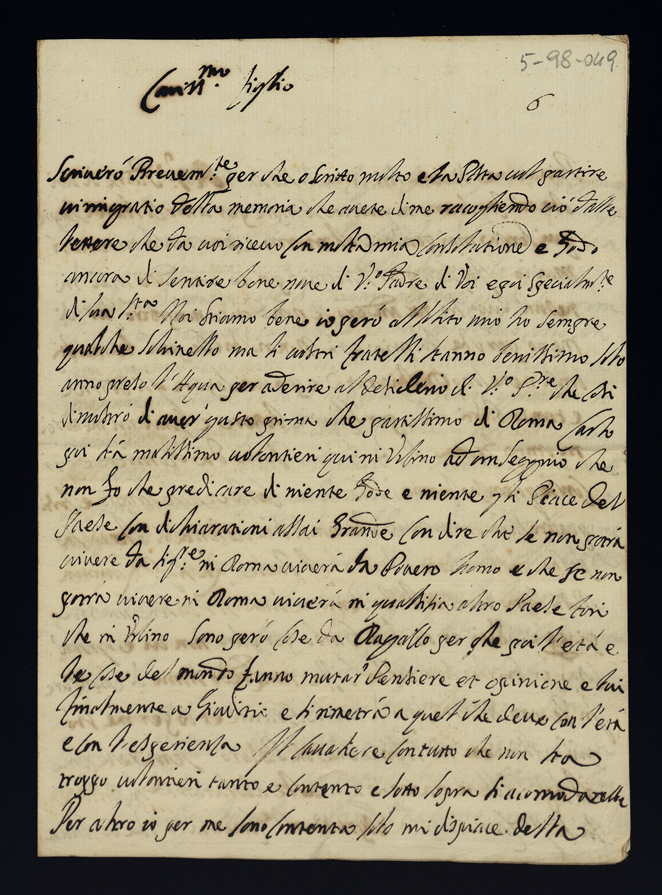 5-98-049
6
Cariss.mo figlio
Scriverò Brevem.te per che o scritto molto e la Posta vol partire
vi ringratio della memoria che avete di me racogliendo ciò dalle
lettere che da voi ricevo con molta mia consolatione e Godo
ancora di sentire bone nove di V.o Padre di Voi e poi specialm.te
di sua S.tà Noi stiamo bene io però al solito mio ho sempre
qualche ma li vostri fratelli stanno benissimo solo
anno preso l'Aqua per aderire al desiderio di V.o P.re che così
di mostrò di aver gusto prima che partissimo di Roma Carlo
poi stà malissimo volontieri qui ni Urbino ad un segno che
non fa che predicare di niente Gode e niente gli Piace del
Paese con dichiarationi assai Grande con dire che se non potrà
vivere da Sig.re ni Roma viverà da Povero homo e che se non
potrà vivere ni Roma viverà ni qualsisia altro Paese fori
che in Urbino sono però cose da Ragazzo per che poi l'età e
le cose del mondo fanno mutar Pensiere et opinione e lui
finalmente a Giuditio e si rimetrà a quel che deve con l'età
e con l'esperienza Il Cavaliere con tutto che non sta
troppo volontieri tanto e contento e sotto sopra si acomoda
Per altro io per me sono contenta solo mi dispiace della